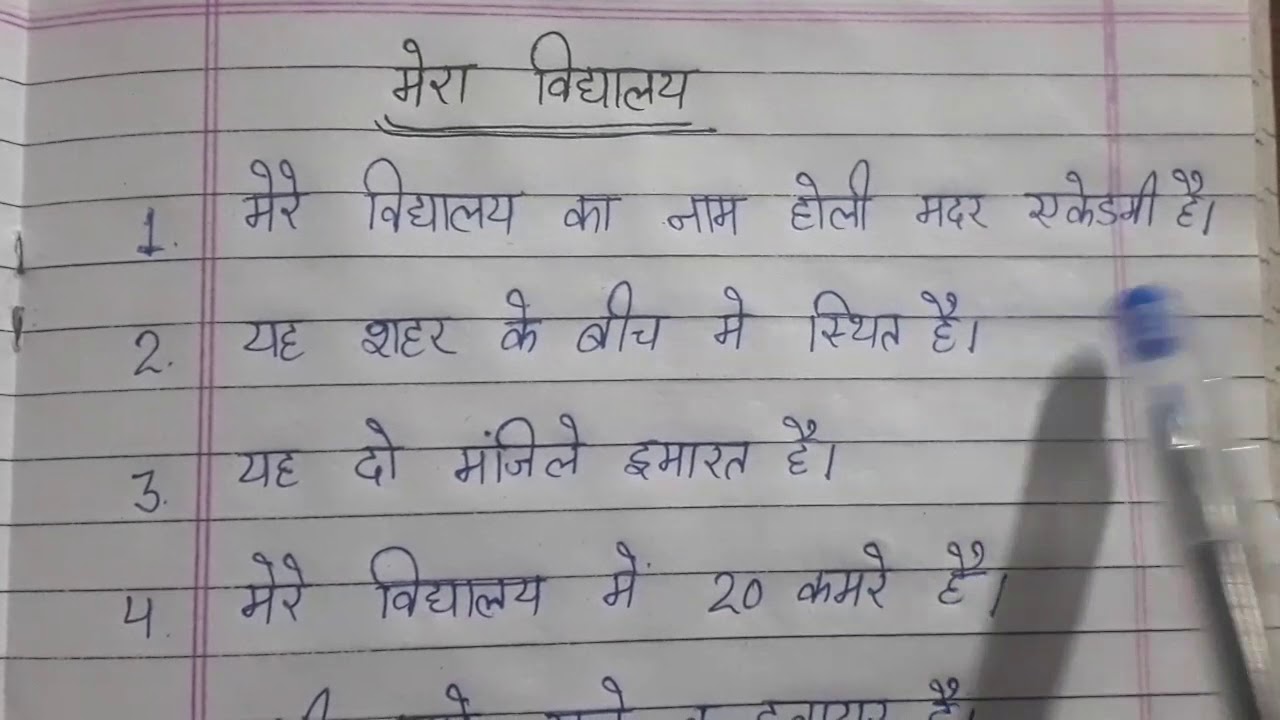 मेरा विद्यालय
1. मेरे विद्यालय का नाम होली मदर एकेडमी है।
2. यह शहर के बीच मे स्थित है।
3. यह दो मंजिले इमारत है।
4. मेरे विद्यालय में 20 कमरे है।
है।